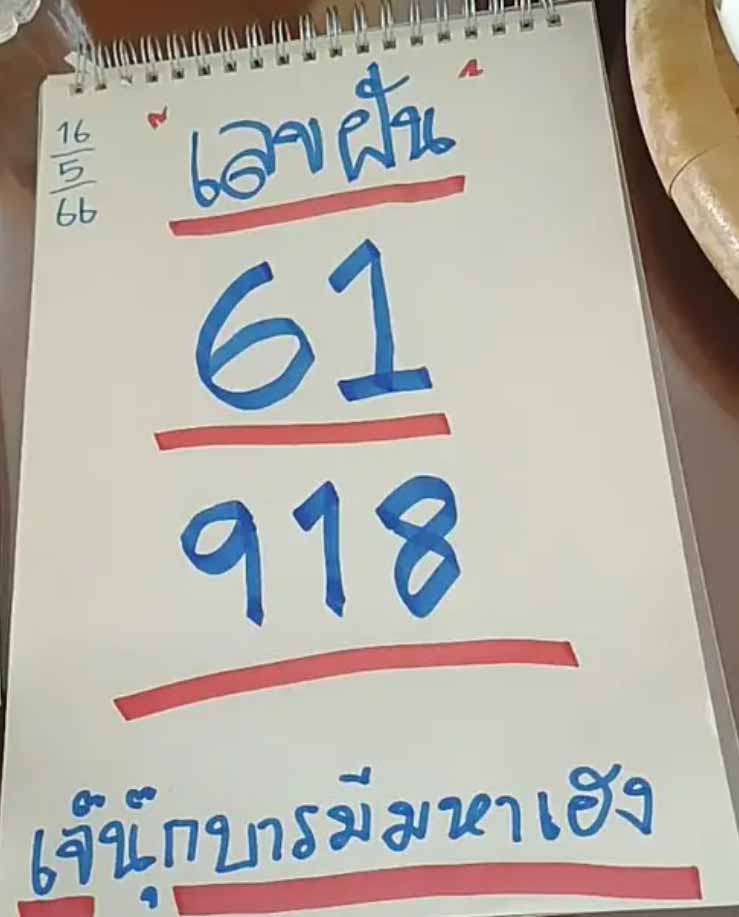 16
5
66
"เลขฝัน"
61
918
เจ๊นุ๊กบารมีมหาเฮง